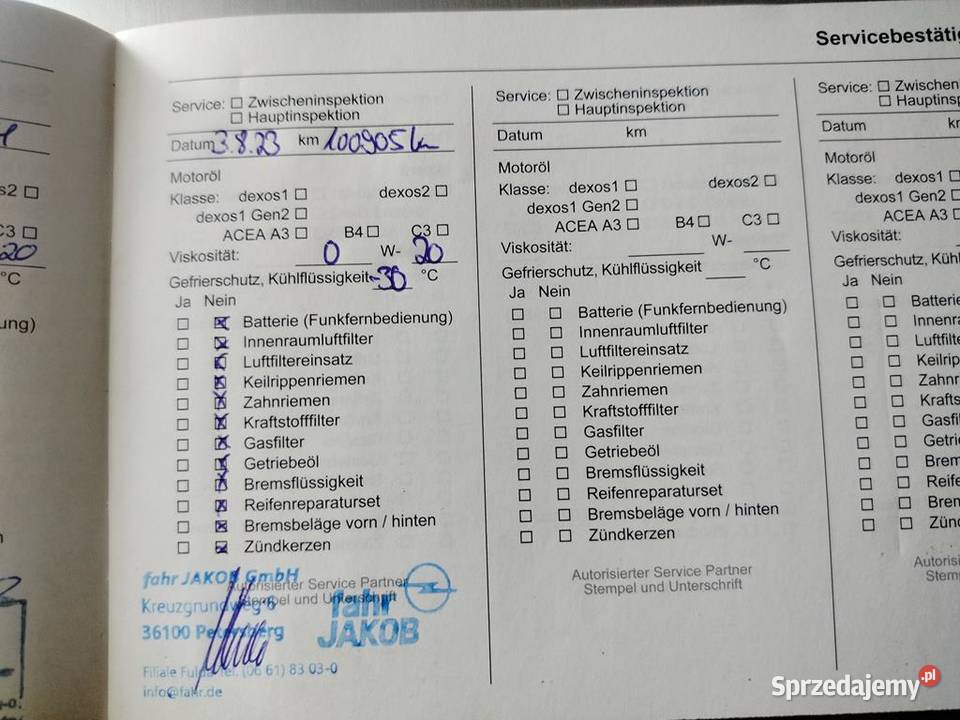 Servicebestätig
Service: ☐ Zwischeninspektion
☐ Hauptinspektion
Datum 3.8.23 km 100905 km
Motoröl
Klasse: dexos1 ☐ dexos2 ☐
dexos1 Gen2 ☐
ACEA A3 ☐ B4 ☐ C3 ☐
Viskosität: 0 W- 20
Gefrierschutz, Kühlflüssigkeit -30 °C
Ja Nein
☐ ☒ Batterie (Funkfernbedienung)
☐ ☒ Innenraumluftfilter
☐ ☒ Luftfiltereinsatz
☐ ☒ Keilrippenriemen
☐ ☒ Zahnriemen
☐ ☒ Kraftstofffilter
☐ ☒ Gasfilter
☐ ☒ Getriebeöl
☐ ☒ Bremsflüssigkeit
☐ ☒ Reifenreparaturset
☐ ☒ Bremsbeläge vorn / hinten
☐ ☒ Zündkerzen
Autorisierter Service Partner
Stempel und Unterschrift
fahr JAKOB GmbH
Kreuzgrundweg 6
36100 Petersberg
Filiale Fulda Tel. (06 61) 83 03-0
info@fahr.de
fahr
JAKOB
Service: ☐ Zwischeninspektion
☐ Hauptinspektion
Datum km
Motoröl
Klasse: dexos1 ☐ dexos2 ☐
dexos1 Gen2 ☐
ACEA A3 ☐ B4 ☐ C3 ☐
Viskosität: W-
Gefrierschutz, Kühlflüssigkeit °C
Ja Nein
☐ ☐ Batterie (Funkfernbedienung)
☐ ☐ Innenraumluftfilter
☐ ☐ Luftfiltereinsatz
☐ ☐ Keilrippenriemen
☐ ☐ Zahnriemen
☐ ☐ Kraftstofffilter
☐ ☐ Gasfilter
☐ ☐ Getriebeöl
☐ ☐ Bremsflüssigkeit
☐ ☐ Reifenreparaturset
☐ ☐ Bremsbeläge vorn / hinten
☐ ☐ Zündkerzen
Autorisierter Service Partner
Stempel und Unterschrift
Service: ☐ Zwischen
☐ Hauptinsp
Datum k
Motoröl
Klasse: dexos1 ☐
dexos1 Gen2
ACEA A3
Viskosität:
Gefrierschutz, Kühl
Ja Nein
☐ ☐ Batterie
☐ ☐ Innenra
☐ ☐ Luftfilte
☐ ☐ Keilripp
☐ ☐ Zahnr
☐ ☐ Krafts
☐ ☐ Gasfil
☐ ☐ Getri
☐ ☐ Brem
☐ ☐ Reife
☐ ☐ Bren
☐ ☐ Zünd
Autorisier
Stem
Sprzedajemy.pl